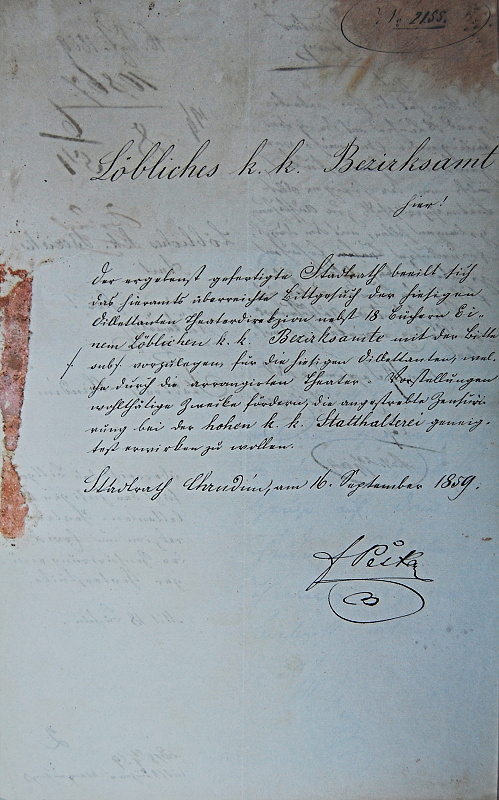 No 2155.
Löbliches k. k. Bezirksamt
hier!
Der ergebenst gefertigte Stadtrath beeilt sich
das hieramts überreichte Bittgesuch der hiesigen
Dilettanten Theaterdirekzion nebst 18 Büchern Ei-
nem Löblichen k. k. Bezirksamte mit der Bitte
vorzulegen, für die hiesigen Dilettanten, wel-
che durch die arrangirten Theater-Vorstellungen
wohlthätige Zwecke fördern, die angestrebte Zensuri-
rung bei der hohen k. k. Statthalterei geneig-
test erwirken zu wollen.
Stadtrath Chrudim, am 16. September 1859.